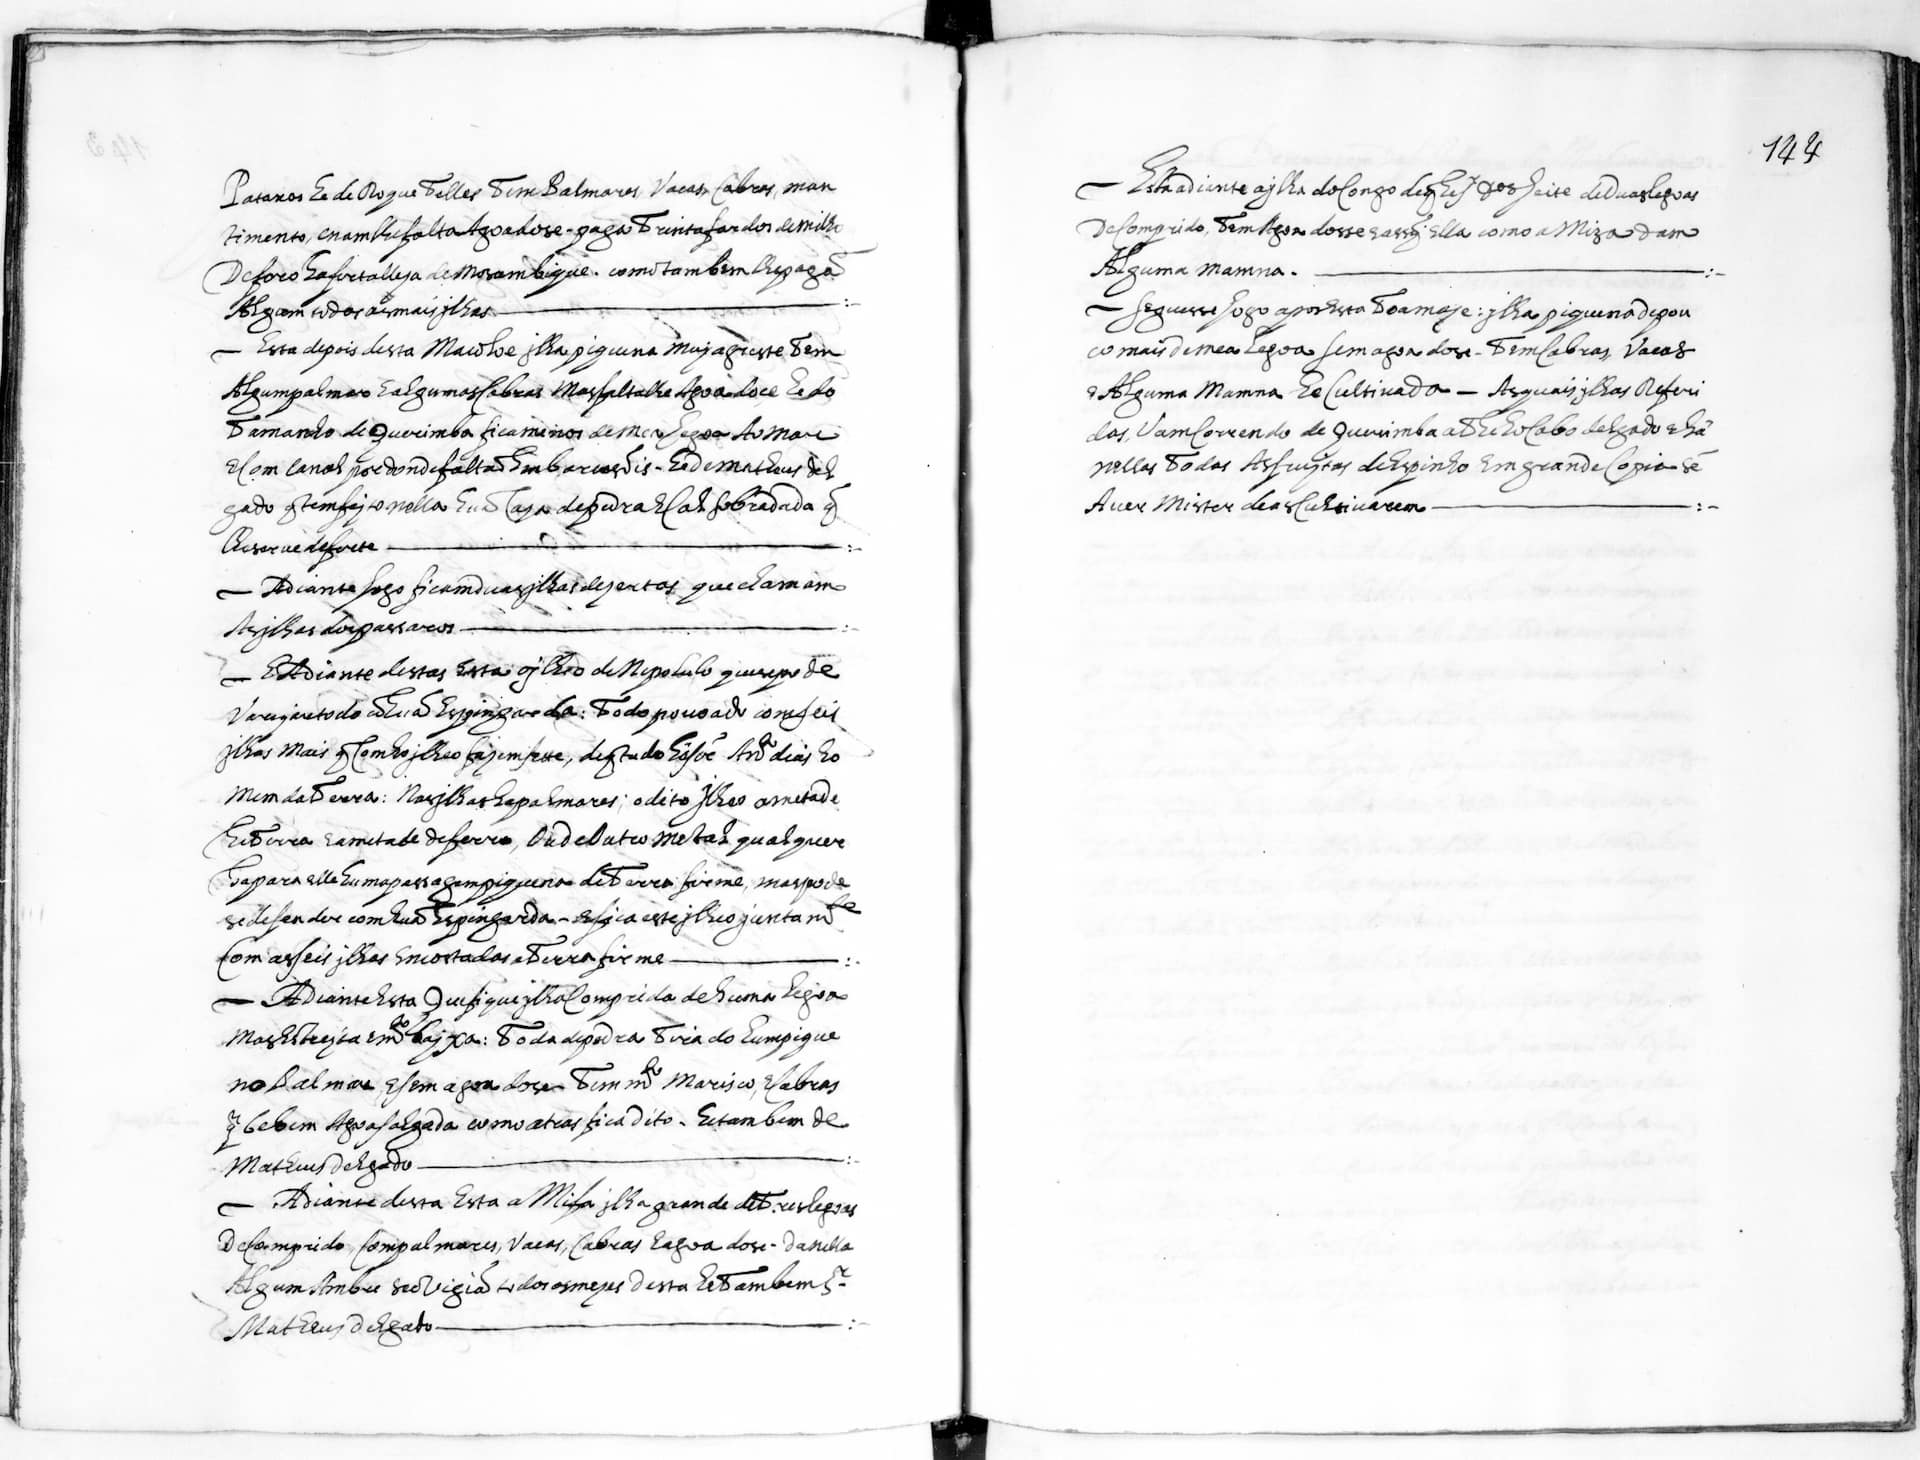 Pataxos he de Roque Telles Tem Palmares, Vacas, Cabras, man
timento, e nam lhe falta Agoa dose - paga Trinta fardos de milho
De foro ha fortalleza de Mosambique. como tambem lhe pagaõ
Algũm todas as mais jlhas
— Esta depois desta Macoloe jlha piquena muj agreste Tem
Algum palmar e algumas Cabras Mas faltalhe Agoa doce he do
Tamanho de Querimba fica menos de mea legoa Ao Mar
E com Canal por donde saltaõ Embarcasõis - he de Matheus del
gado q̃ tem fejto nella huã Caza de pedra E Cal sobradada q̃
lhe serue de forte
— Adiante logo ficam duas jlhas dezertas, que chamam
As jlhas dos passaros
— E Adiante destas Esta o jlheo de Nypolulo que se pode
Varejar todo cõ huã Espingarda: Todo pouoado com seis
jlhas Mais q̃ Com ho jlheo fazem sette, de q̃ tudo he Antº dias ho
mem da Terra: Nas jlhas ha palmares; o dito jlheo a metade
he Terra e a metade de ferro, Ou de Outro metal qualquer
ha para elle huma passagem piquena da Terra firme, mas pode
se defender com huã Espingarda - e fica este jlheo juntamte
Com as seis jlhas encostadas a Terra firme
— Adiante Esta Quifique jlha Comprida de huma legoa
Mas Estrejta e mto bajxa: Toda de pedra Tirado hum pique
no Palmar, e sem agoa dose Tem mto Marisco, E Cabras
q̃ bebem Agoa salgada como atras fica dito - he tambem de
Matheus delgado
— Adiante desta Esta a Misa jlha grande de Tres legoas
De Comprido, Com palmares, Vacas, Cabras e agoa dose - da nella
Algum Ambre se o Vigiaõ todos os mezes desta he Tambem sr
Matheus delgado
144
— Esta adiante a jlha do Congo de q̃ he sr Jos Leite de Duas legoas
De Comprido, Tem Agoa dosse e assy ella como a Miza dam
Alguma mamna.
— Seguesse logo apos Esta Toamaje: jlha piquena de pou
co mais de mea legoa sem agoa dose - Tem Cabras, Vacas
e Alguma Mamna he Cultivada — As quais jlhas Referi
das, Vam Correndo de Querimba athe ho Cabo delgado e há
nellas Todas As frujtas de Espinho em grande Copia sẽ
Auer Mister de as Cultiuarem